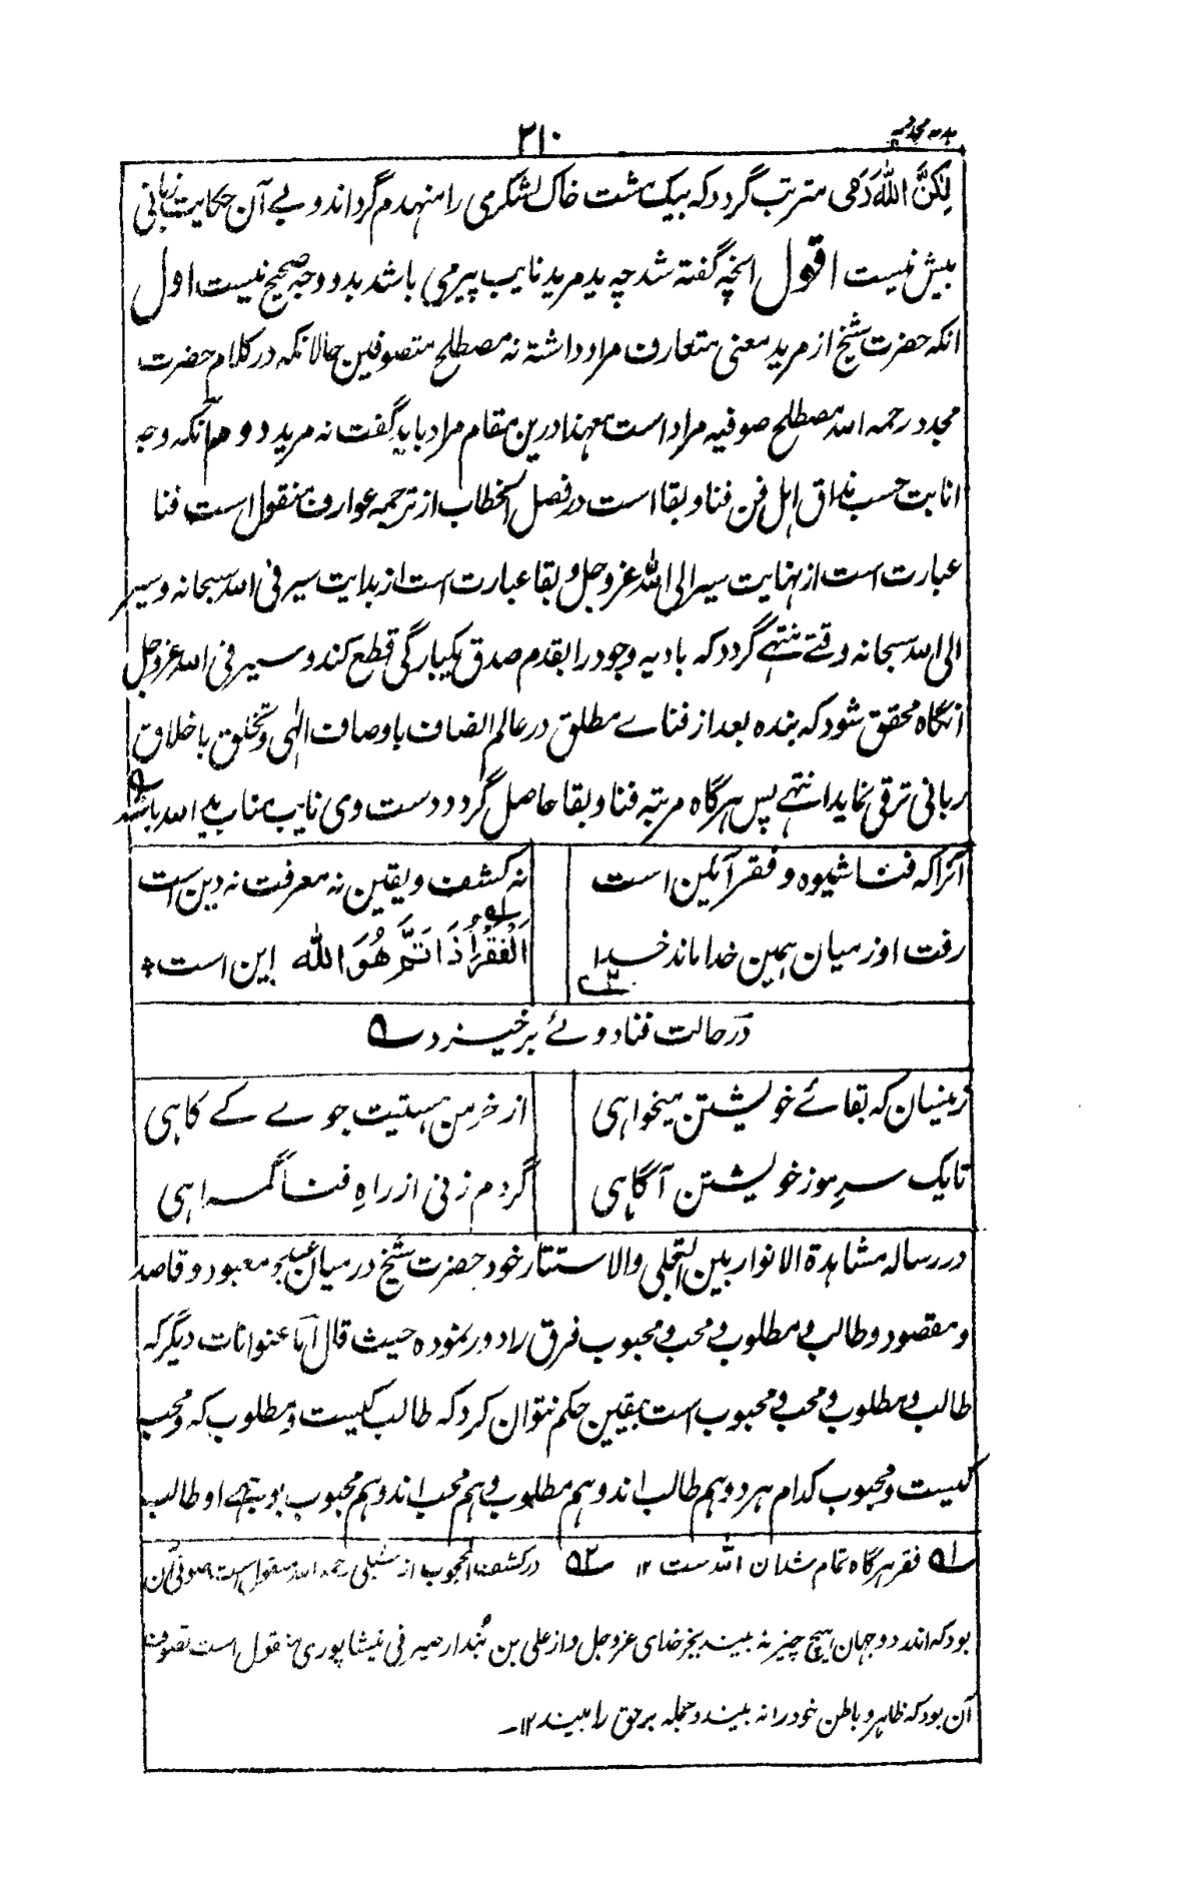 ۲۱۰
لٰكِنَّ اللّٰهَ رَمٰی مترتب گردد که بیک مشت خاک لشکری را منهدم گرداند و بے آن حکایت زبانی
بیش نیست اقول انچه گفته شد چه ید مرید نایب پیر می باشد بدو وجه صحیح نیست اول
انکه حضرت شیخ از مرید معنی متعارف مراد داشته نه مصطلح متصوفین حالانکه در کلام حضرت
مجدد رحمه الله مصطلح صوفیه مراد است معهذا درین مقام مراد باید گفت نه مرید دوم آنکه وجه
انابت حسب مذاق اهل فن فنا و بقا است در فصل الخطاب از ترجمه عوارف منقول است فنا
عبارت است از نهایت سیر الی الله عز و جل و بقا عبارت است از بدایت سیر فی الله سبحانه و سیر
الی الله سبحانه وقتے منتہے گردد که بادیه وجود را بقدم صدق یکبارگی قطع کند و سیر فی الله عز و جل
آنگاه محقق شود که بنده بعد از فناے مطلق در عالم اتصاف باوصاف الٰهی و تخلق باخلاق
ربانی ترقی نماید انتہے پس هرگاه مرتبه فنا و بقا حاصل گردد دست وی نایب مناب ید الله باشد
آنرا که فنا شیوه و فقر آئین است نه کشف و یقین نه معرفت نه دین است
رفت او ز میان همین خدا ماند خدا اَلْفَقْرُ اِذَا تَمَّ هُوَ اللّٰه این است
در حالت فنا دوئے برخیزد
زینسان که بقائے خویشتن میخواهی از خرمن هستیت جوے کے کاهی
تا یک سرِ مو ز خویشتن آگاهی گر دم زنی از راهِ فنا گمراهی
در رساله مشاهدة الانوار بین التجلی والاستتار خود حضرت شیخ در میان عبد و معبود و قاصد
و مقصود و طالب و مطلوب و محب و محبوب فرق را دور نموده حیث قال اما عنوانات دیگر که
طالب و مطلوب و محب و محبوب است بیقین حکم نتوان کرد که طالب کیست و مطلوب که و محب
کیست و محبوب کدام هر دو هم طالب اند و هم مطلوب و هم محب اند و هم محبوب او طالب
۱ فقر هرگاه تمام شد آن الله ست ۱۲ ۲ در کشف المحجوب از شبلی رحمه الله منقول است صوفی آن
بود که اندر دو جهان هیچ چیز نه بیند بجز خدای عز و جل و از علی بن بُندار صیرفی نیشاپوری منقول است تصوف
آن بود که ظاهر و باطن خود را نه بیند و جمله بر حق را بیند ۱۲